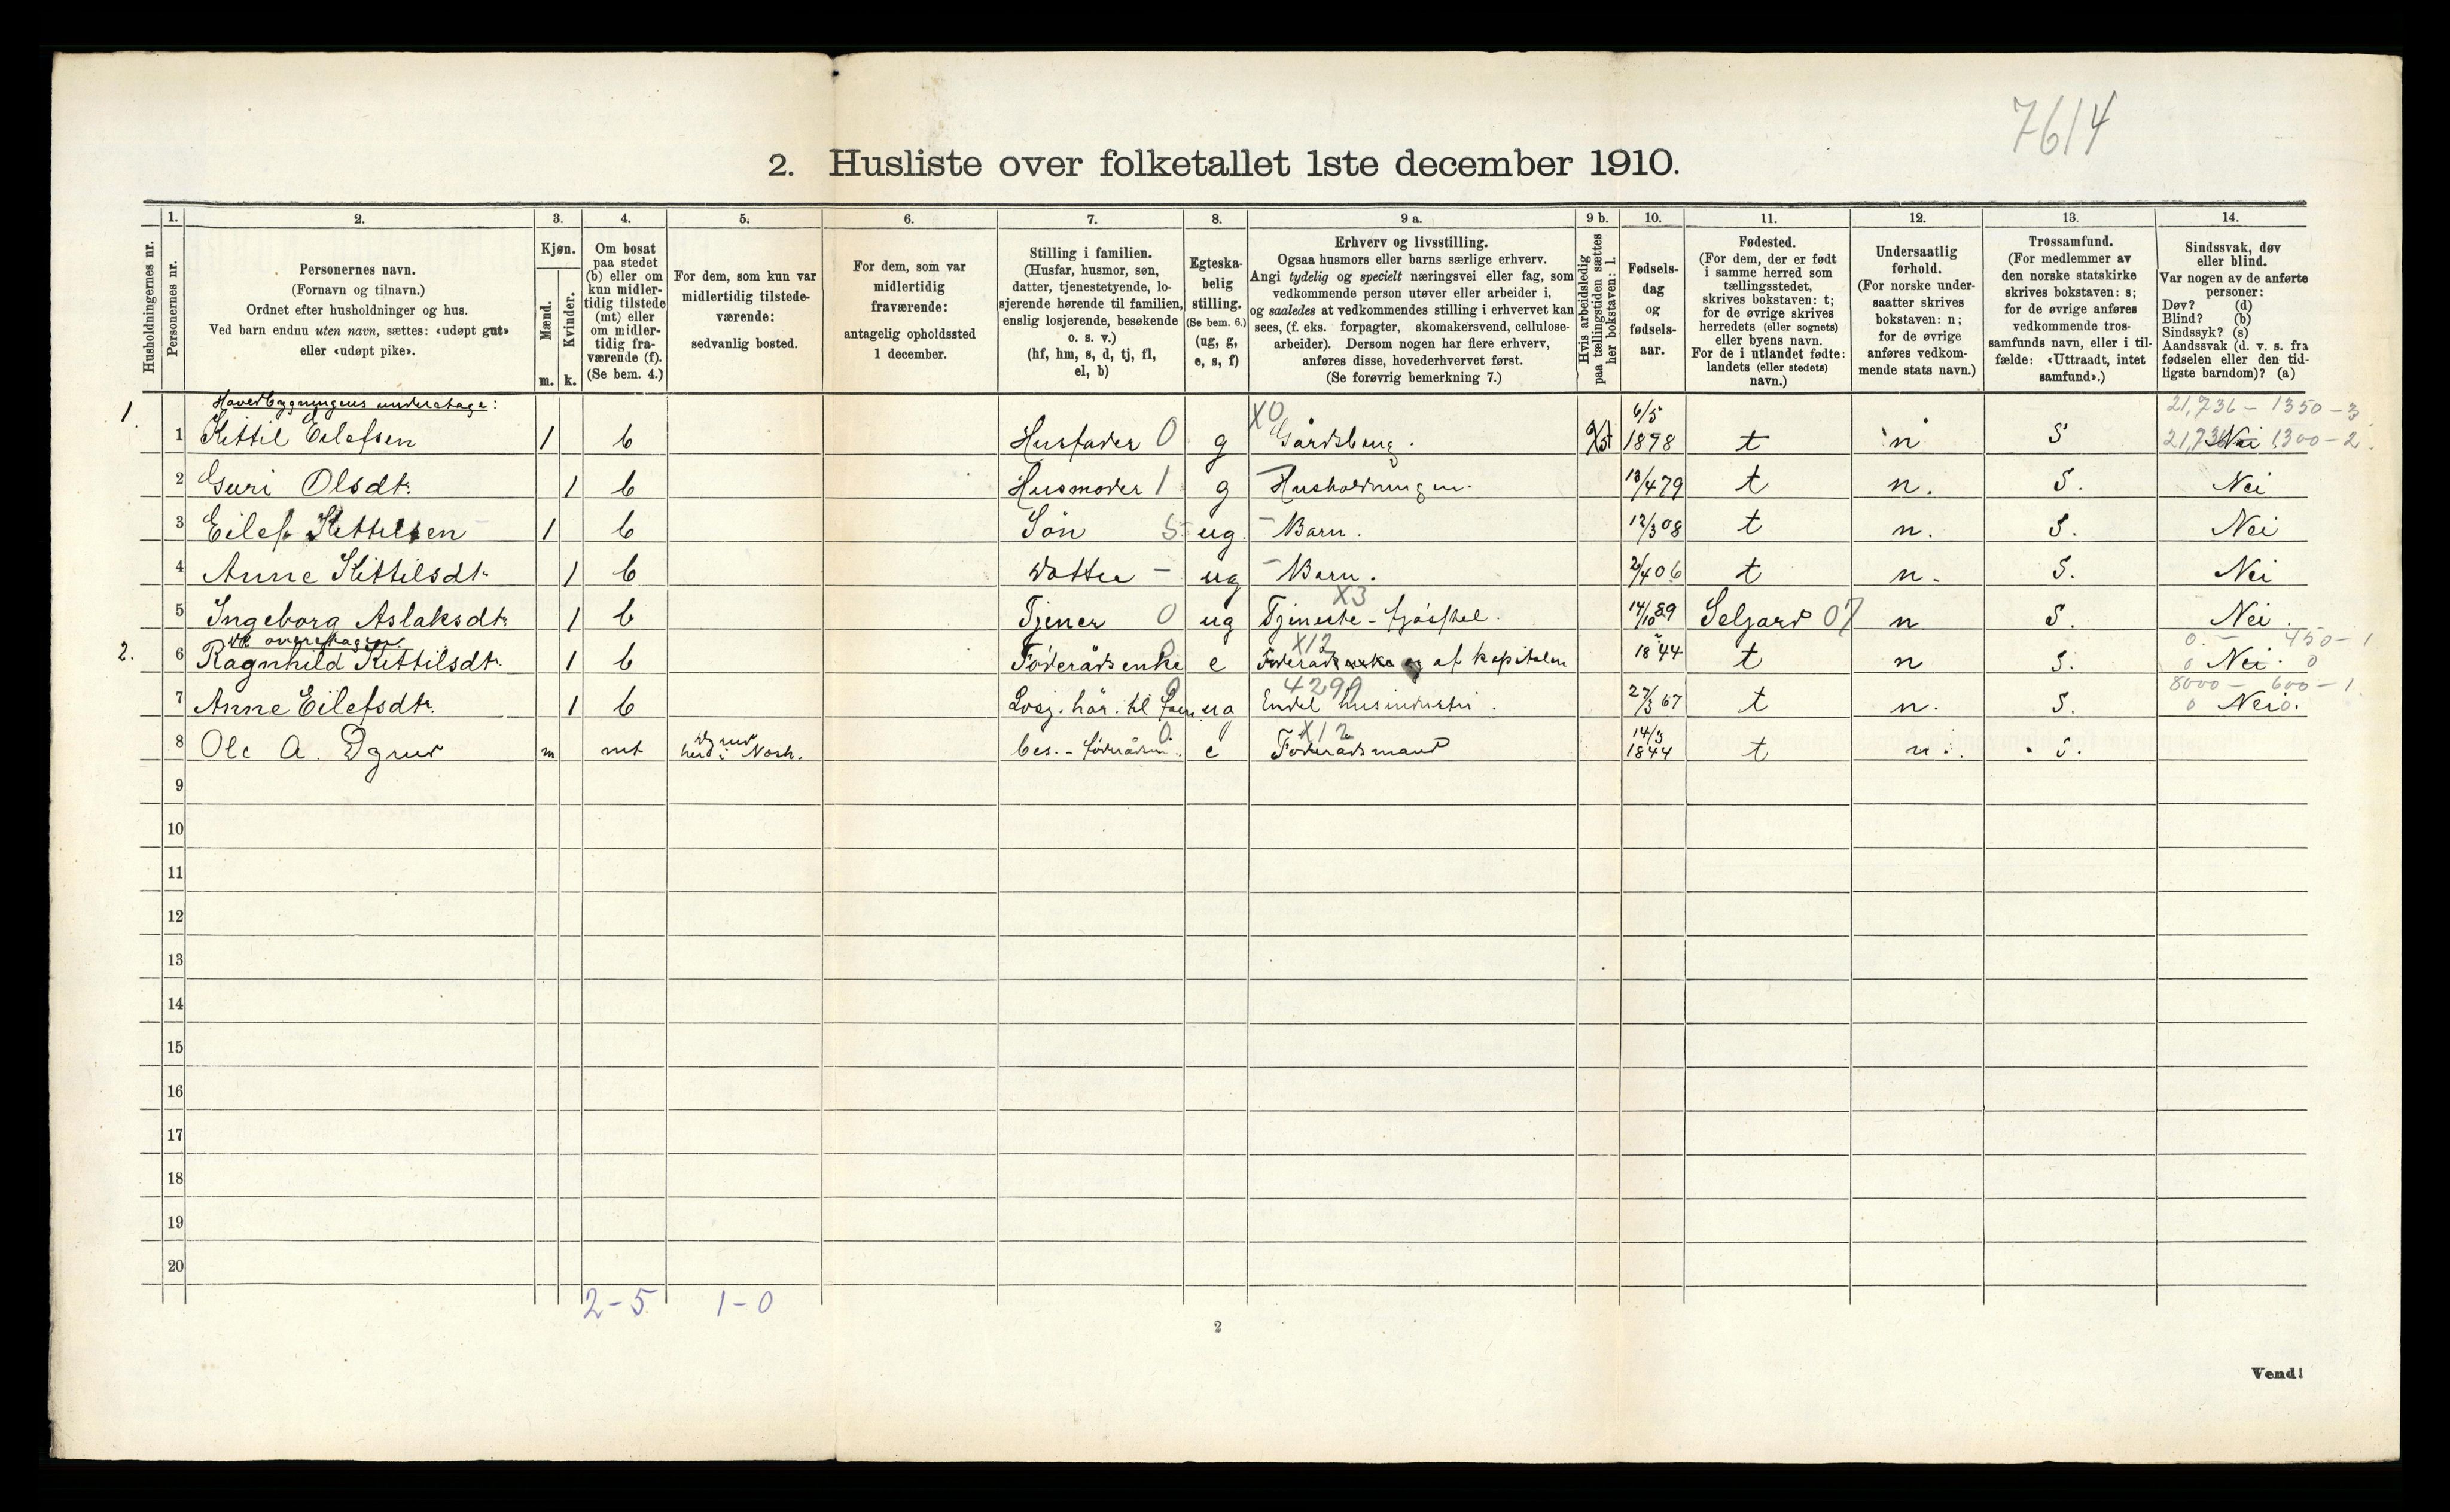 7614
2. Husliste over folketallet 1ste december 1910.
Husholdningernes nr.
1. Personernes nr.
2. Personernes navn.
(Fornavn og tilnavn.)
Ordnet efter husholdninger og hus.
Ved barn endnu uten navn, sættes: «udøpt gut»
eller «udøpt pike».
3. Kjøn.
Mænd. m.
Kvinder. k.
4. Om bosat
paa stedet
(b) eller om
kun midler-
tidig tilstede
(mt) eller
om midler-
tidig fra-
værende (f).
(Se bem. 4.)
5. For dem, som kun var
midlertidig tilstede-
værende:
sedvanlig bosted.
6. For dem, som var
midlertidig
fraværende:
antagelig opholdssted
1 december.
7. Stilling i familien.
(Husfar, husmor, søn,
datter, tjenestetyende, lo-
sjerende hørende til familien,
enslig losjerende, besøkende
o. s. v.)
(hf, hm, s, d, tj, fl,
el, b)
8. Egteska-
belig
stilling.
(Se bem. 6.)
(ug, g,
e, s, f)
9 a. Erhverv og livsstilling.
Ogsaa husmors eller barns særlige erhverv.
Angi tydelig og specielt næringsvei eller fag, som
vedkommende person utøver eller arbeider i,
og saaledes at vedkommendes stilling i erhvervet kan
sees, (f. eks. forpagter, skomakersvend, cellulose-
arbeider). Dersom nogen har flere erhverv,
anføres disse, hovederhvervet først.
(Se forøvrig bemerkning 7.)
9 b. Hvis arbeidsledig
paa tællingstiden sættes
her bokstaven: l.
10. Fødsels-
dag
og
fødsels-
aar.
11. Fødested.
(For dem, der er født
i samme herred som
tællingsstedet,
skrives bokstaven: t;
for de øvrige skrives
herredets (eller sognets)
eller byens navn.
For de i utlandet fødte:
landets (eller stedets)
navn.)
12. Undersaatlig
forhold.
(For norske under-
saatter skrives
bokstaven: n;
for de øvrige
anføres vedkom-
mende stats navn.)
13. Trossamfund.
(For medlemmer av
den norske statskirke
skrives bokstaven: s;
for de øvrige anføres
vedkommende tros-
samfunds navn, eller i til-
fælde: «Uttraadt, intet
samfund».)
14. Sindssvak, døv
eller blind.
Var nogen av de anførte
personer:
Døv? (d)
Blind? (b)
Sindssyk? (s)
Aandssvak (d. v. s. fra
fødselen eller den tid-
ligste barndom)? (a)
1. Hovedbygningens underetage: 21,736 - 1350 - 3
1 Kittil Eilefsen 1 b Husfader 0 g X0 Gårdsbrug. 6/5 1878 t n S Nei 1300 - 2
2 Guri Olsdtr. 1 b Husmoder 1 g Husholdningen. 13/4 79 t n. S. Nei
3 Eilef Kittilsen 1 b Sön S ug - Barn. 12/3 08 t n. S. Nei
4 Anne Kittilsdt. 1 b Datter - ug - Barn. 2/4 06 t n. S. Nei
5 Ingeborg Aslaksdtr 1 b Tjener 0 ug X3 Tjeneste - fjösstel. 14/10 89 Seljord 07 n S. Nei.
2. overetagen 0. - 450 - 1
6 Ragnhild Kittilsdtr. 1 b Föderådsenke e X12 af kapitalen 1844 t n S. 0 Nei. 0
8000 - 600 - 1
7 Anne Eilefsdtr. 1 b Losj. hör. til fam. ug 4299 Endel husindustri. 27/3 67 t n. S. 0 Nei 0.
8 Ole A. Dgrud m mt i Norh. bes. - föderådsm. 0 e X12 Föderådsmand 14/3 1844 t n. S.
9
10
11
12
13
14
15
16
17
18
19
20
2-5 1-0
2
Vend!